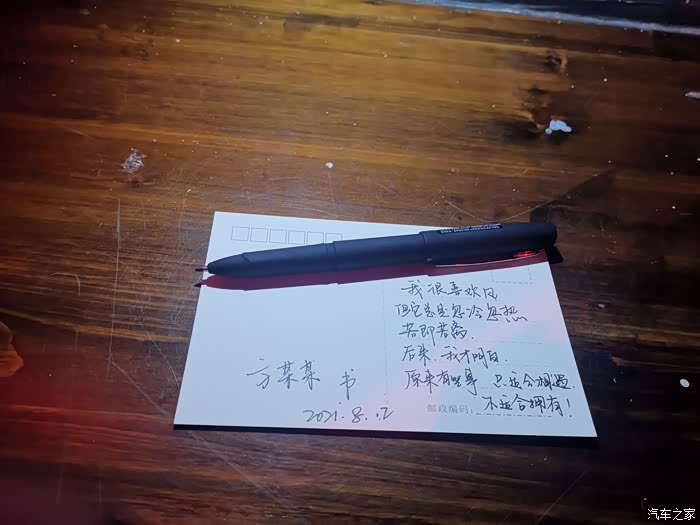 我很喜欢风
但它总是忽冷忽热
若即若离.
后来, 我才明白.
原来有些事 只适合相遇.
不适合拥有!
邮政编码:
方某某 书
2021.8.12
汽车之家